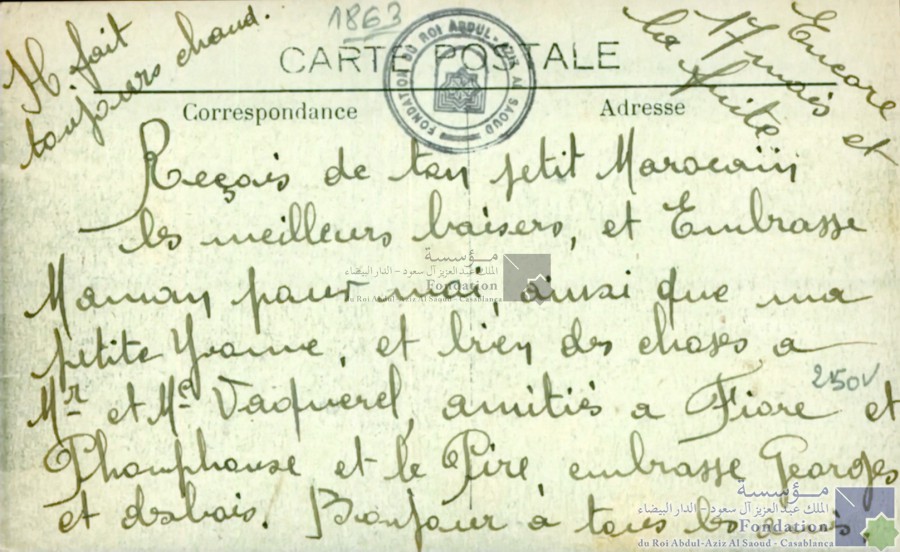 1863
Il fait
toujours chaud.
Encore
17 mois et
la suite
CARTE POSTALE
FONDATION DU ROI ABDUL-AZIZ AL SAOUD
Correspondance
Adresse
Reçois de ton petit Marocain
les meilleurs baisers, et Embrasse
Maman pour moi, ainsi que ma
petite Yvonne, et bien des choses a
2150V
Mr et Me Vaquerel, amitiés a Fiore et
et le Père, embrasse Georges
et Bonjour à tous les amis.
مؤسسة
الملك عبد العزيز آل سعود - الدار البيضاء
Fondation
du Roi Abdul-Aziz Al Saoud - Casablanca
مؤسسة
الملك عبد العزيز آل سعود - الدار البيضاء
Fondation
du Roi Abdul-Aziz Al Saoud - Casablanca